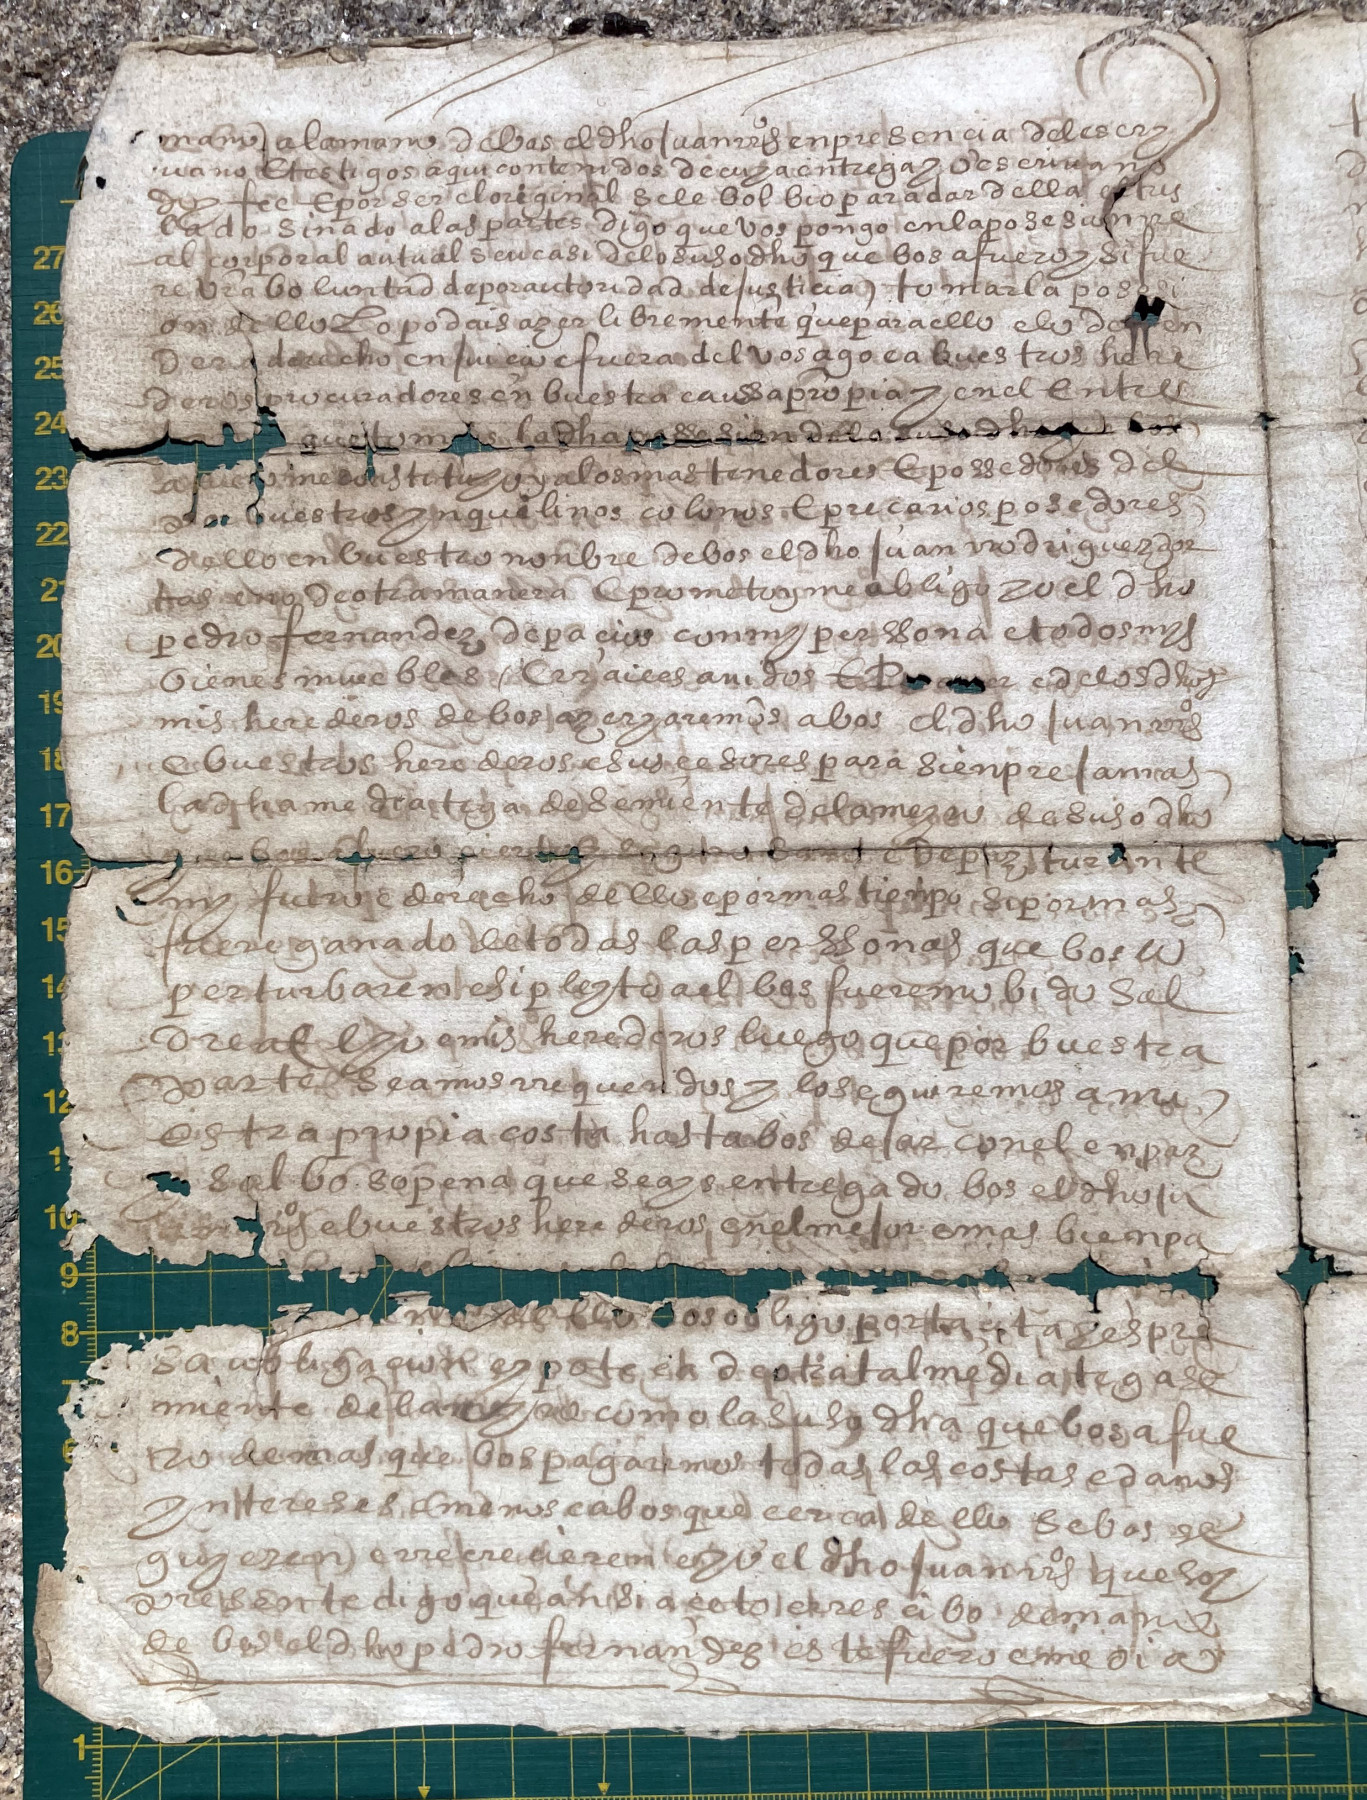 mano a la mano de vos el dho juan rrs en presencia del escri
vano e testigos aqui contenidos de cuya entrega yo escrivano
doy fee e por ser el original se le bolbio para dar della estras
lado sinado a las partes digo que vos pongo en la posesion rre
al corporal autual seu casi de lo susodho que bos afuero y si fue
re vra boluntad de por autoridad de justicia tomar la posesi
on dello lo podais azer libremente que para ello e lo defen
der derecho en juicio e fuera del vos ago e a buestros here
deros procuradores en buestra caussa propia y en el entre
que tomais la dha possesion de lo susodho bos
me constituyo y a los mas tenedores e possedores del
por buestros ynquelinos colonos e precarios posedores
dello en buestro nonbre de bos el dho juan rrodriguez dor
tas e no de otra manera e prometo y me obligo yo el dho
pedro fernandez de pacios con my perssona e todos mys
bienes muebles e rrayces avidos e por aver e de los dhos
mis herederos de bos azer y aremos a bos el dho juan rrs
e buestros herederos e suscesores para sienpre jamas
la dha media tega de semiente de lameyro de susodho
que bos afuero cierta y segura sano e de paz durante
my fuero e derecho dello e por mas tienpo si por mas
fuere ganado de todas las perssonas que bos lo
perturbaren e si pleyto a el bos fuere mobido sal
dre al yo e mis herederos luego que por buestra
parte seamos rrequeridos y lo seguiremos a nu
estra propia costa hasta bos dejar con el en paz
y salbo so pena que seays entregado bos el dho ju
rrs e buestros herederos en el mejor e mas bien pa
dello bos obligo por tacita y espre
sa obligacion e ypoteca de otra tal media tega se
miente de lameyro como la susodha que bos afue
ro demas que bos pagaremos todas las costas e danos
yntereses e menoscabos que cerca dello se bos se
guyeren e rrecrecieren e yo el dho juan rrs que soy
presente digo que ansi aceto e rrescibo de mano
de bos el dho pedro fernandez este fuero e media